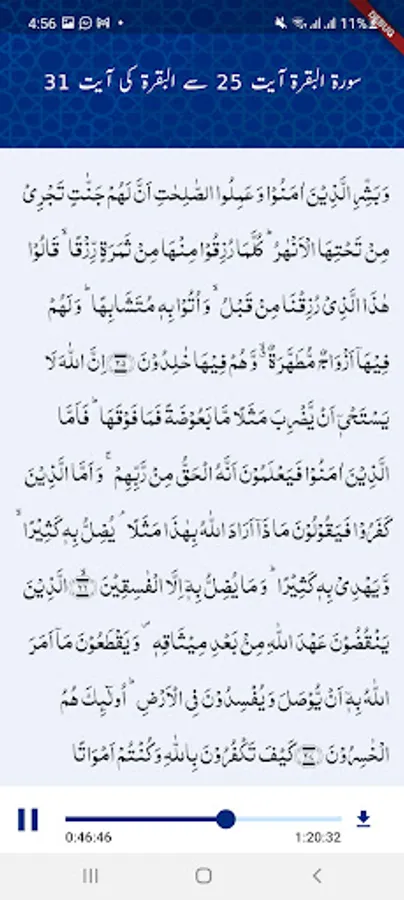 4:56
11%
DEBUG
سورۃ البقرۃ آیت 25 سے البقرۃ کی آیت 31
وَبَشِّرِ الَّذِيْنَ اٰمَنُوْا وَعَمِلُوا الصّٰلِحٰتِ اَنَّ لَهُمْ جَنّٰتٍ تَجْرِىْ
مِنْ تَحْتِهَا الْاَنْهٰرُ ؕ كُلَّمَا رُزِقُوْا مِنْهَا مِنْ ثَمَرَةٍ رِّزْقًا ۙ قَالُوْا
هٰذَا الَّذِىْ رُزِقْنَا مِنْ قَبْلُ ۙ وَاُتُوْا بِهٖ مُتَشَابِهًا ؕ وَلَهُمْ
فِيْهَآ اَزْوَاجٌ مُّطَهَّرَةٌ ۙ وَّهُمْ فِيْهَا خٰلِدُوْنَ ﴿۲۵﴾ اِنَّ اللّٰهَ لَا
يَسْتَحْىٖۤ اَنْ يَّضْرِبَ مَثَلًا مَّا بَعُوْضَةً فَمَا فَوْقَهَا ؕ فَاَمَّا
الَّذِيْنَ اٰمَنُوْا فَيَعْلَمُوْنَ اَنَّهُ الْحَقُّ مِنْ رَّبِّهِمْ ۚ وَاَمَّا الَّذِيْنَ
كَفَرُوْا فَيَقُوْلُوْنَ مَاذَآ اَرَادَ اللّٰهُ بِهٰذَا مَثَلًا ۘ يُضِلُّ بِهٖ كَثِيْرًا ۙ
وَّيَهْدِىْ بِهٖ كَثِيْرًا ؕ وَمَا يُضِلُّ بِهٖۤ اِلَّا الْفٰسِقِيْنَ ﴿۲۶﴾ الَّذِيْنَ
يَنْقُضُوْنَ عَهْدَ اللّٰهِ مِنْۢ بَعْدِ مِيْثَاقِهٖ ۪ وَيَقْطَعُوْنَ مَآ اَمَرَ
اللّٰهُ بِهٖۤ اَنْ يُّوْصَلَ وَيُفْسِدُوْنَ فِى الْاَرْضِ ؕ اُولٰٓٮِٕكَ هُمُ
الْخٰسِرُوْنَ ﴿۲۷﴾ كَيْفَ تَكْفُرُوْنَ بِاللّٰهِ وَكُنْتُمْ اَمْوَاتًا
0:46:46
1:20:32